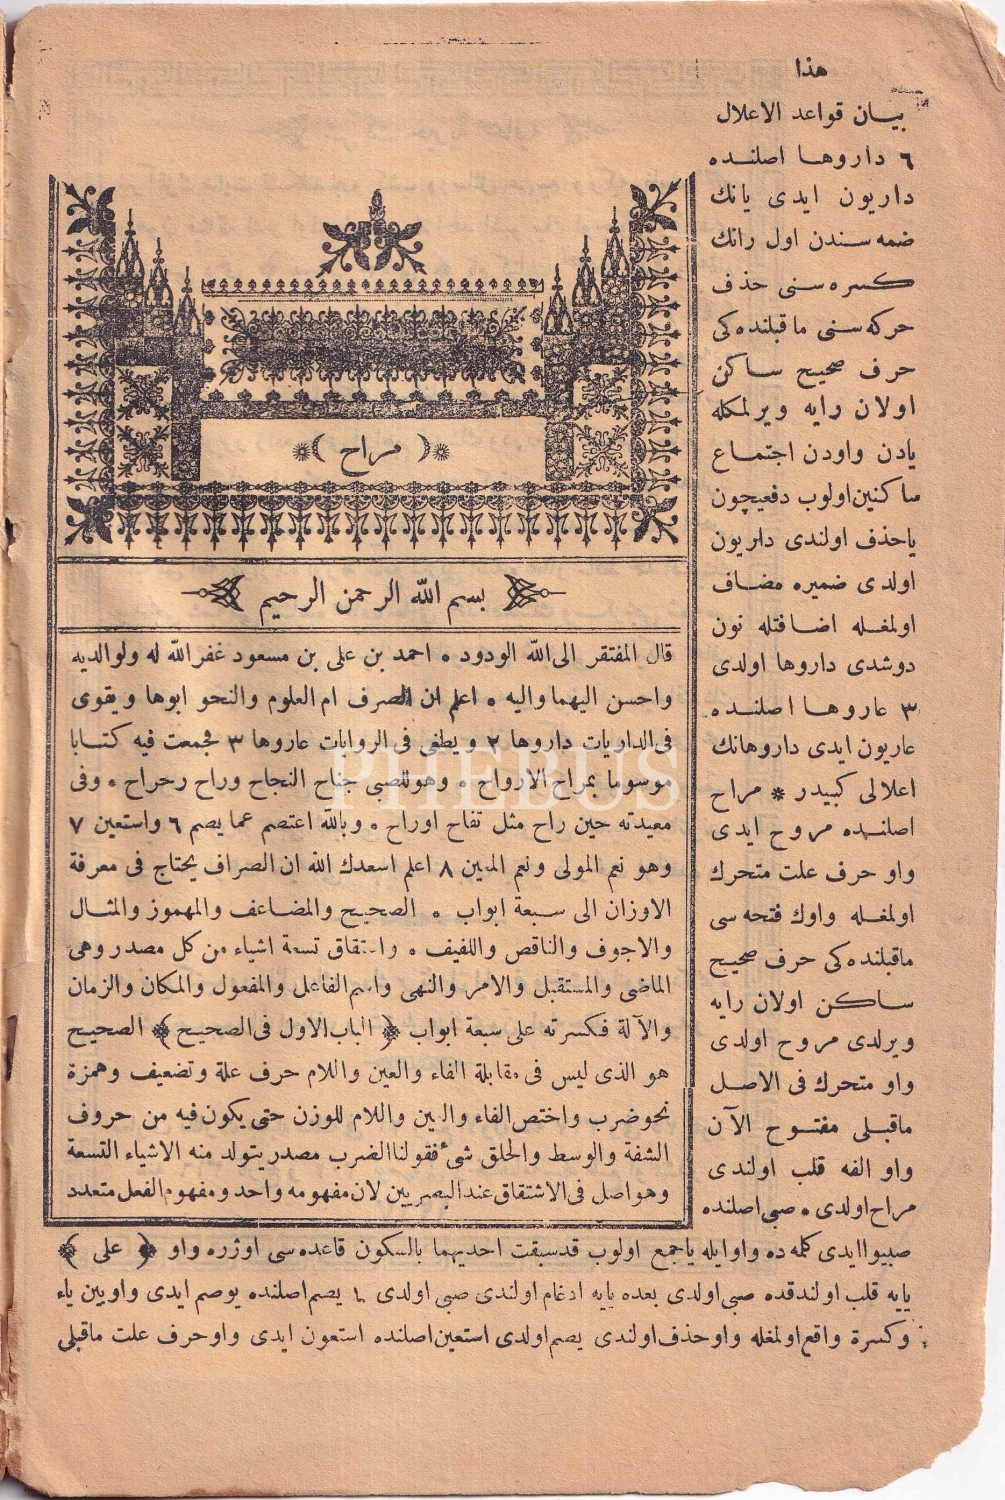 هذا
بيان قواعد الاعلال
٦ داروها اصلنده
داريون ايدى يانك
ضمه سندن اول رانك
كسره سنى حذف
حركه سنى ماقبلنده كى
حرف صحيح ساكن
اولان رايه ويرلمكله
يادن واودن اجتماع
ساكنين اولوب دفعيچون
يا حذف اولندى داريون
اولدى ضميره مضاف
اولمغله اضافتله نون
دوشدى داروها اولدى
٣ عاروها اصلنده
عاريون ايدى داروهانك
اعلالى كبيدر * مراح
اصلنده مروح ايدى
واو حرف علت متحرك
اولمغله واوك فتحه سى
ماقبلنده كى حرف صحيح
ساكن اولان رايه
ويرلدى مروح اولدى
واو متحرك فى الاصل
ماقبلى مفتوح الآن
واو الفه قلب اولندى
مراح اولدى ٠ صبى اصلنده
﴿ مراح ﴾
بسم الله الرحمن الرحيم
قال المفتقر الى الله الودود ٠ احمد بن على بن مسعود غفر الله له ولوالديه
واحسن اليهما واليه ٠ اعلم ان الصرف ام العلوم والنحو ابوها ويقوى
فى الداويات داروها ٢ ويطغى فى الروايات عاروها ٣ فجمعت فيه كتابا
موسوما بمراح الارواح ٠ وهو للصبى جناح النجاح وراح رحراح ٠ وفى
معيدته حين راح مثل تفاح اوراح ٠ وبالله اعتصم عما يصم ٦ واستعين ٧
وهو نعم المولى ونعم المعين ٨ اعلم اسعدك الله ان الصراف يحتاج فى معرفة
الاوزان الى سبعة ابواب ٠ الصحيح والمضاعف والمهموز والمثال
والاجوف والناقص واللفيف ٠ واشتقاق تسعة اشياء من كل مصدر وهى
الماضى والمستقبل والامر والنهى واسم الفاعل والمفعول والمكان والزمان
والآلة فكسرته على سبعة ابواب ﴿ الباب الاول فى الصحيح ﴾ الصحيح
هو الذى ليس فى مقابلة الفاء والعين واللام حرف علة وتضعيف وهمزة
نحو ضرب واختص الفاء والعين واللام للوزن حتى يكون فيه من حروف
الشفة والوسط والحلق شئ فقولنا الضرب مصدر يتولد منه الاشياء التسعة
وهو اصل فى الاشتقاق عند البصريين لان مفهومه واحد ومفهوم الفعل متعدد
صبيوا ايدى كلمه ده واو ايله يا جمع اولوب قد سبقت احديهما بالسكون قاعده سى اوزره واو ﴿ على ﴾
يايه قلب اولندقده صبى اولدى بعده يايه ادغام اولندى صبى اولدى ٦ يصم اصلنده يوصم ايدى واو بين ياء
وكسرة واقع اولمغله واو حذف اولندى يصم اولدى استعين اصلنده استعون ايدى واو حرف علت ماقبلى
PHEBUS